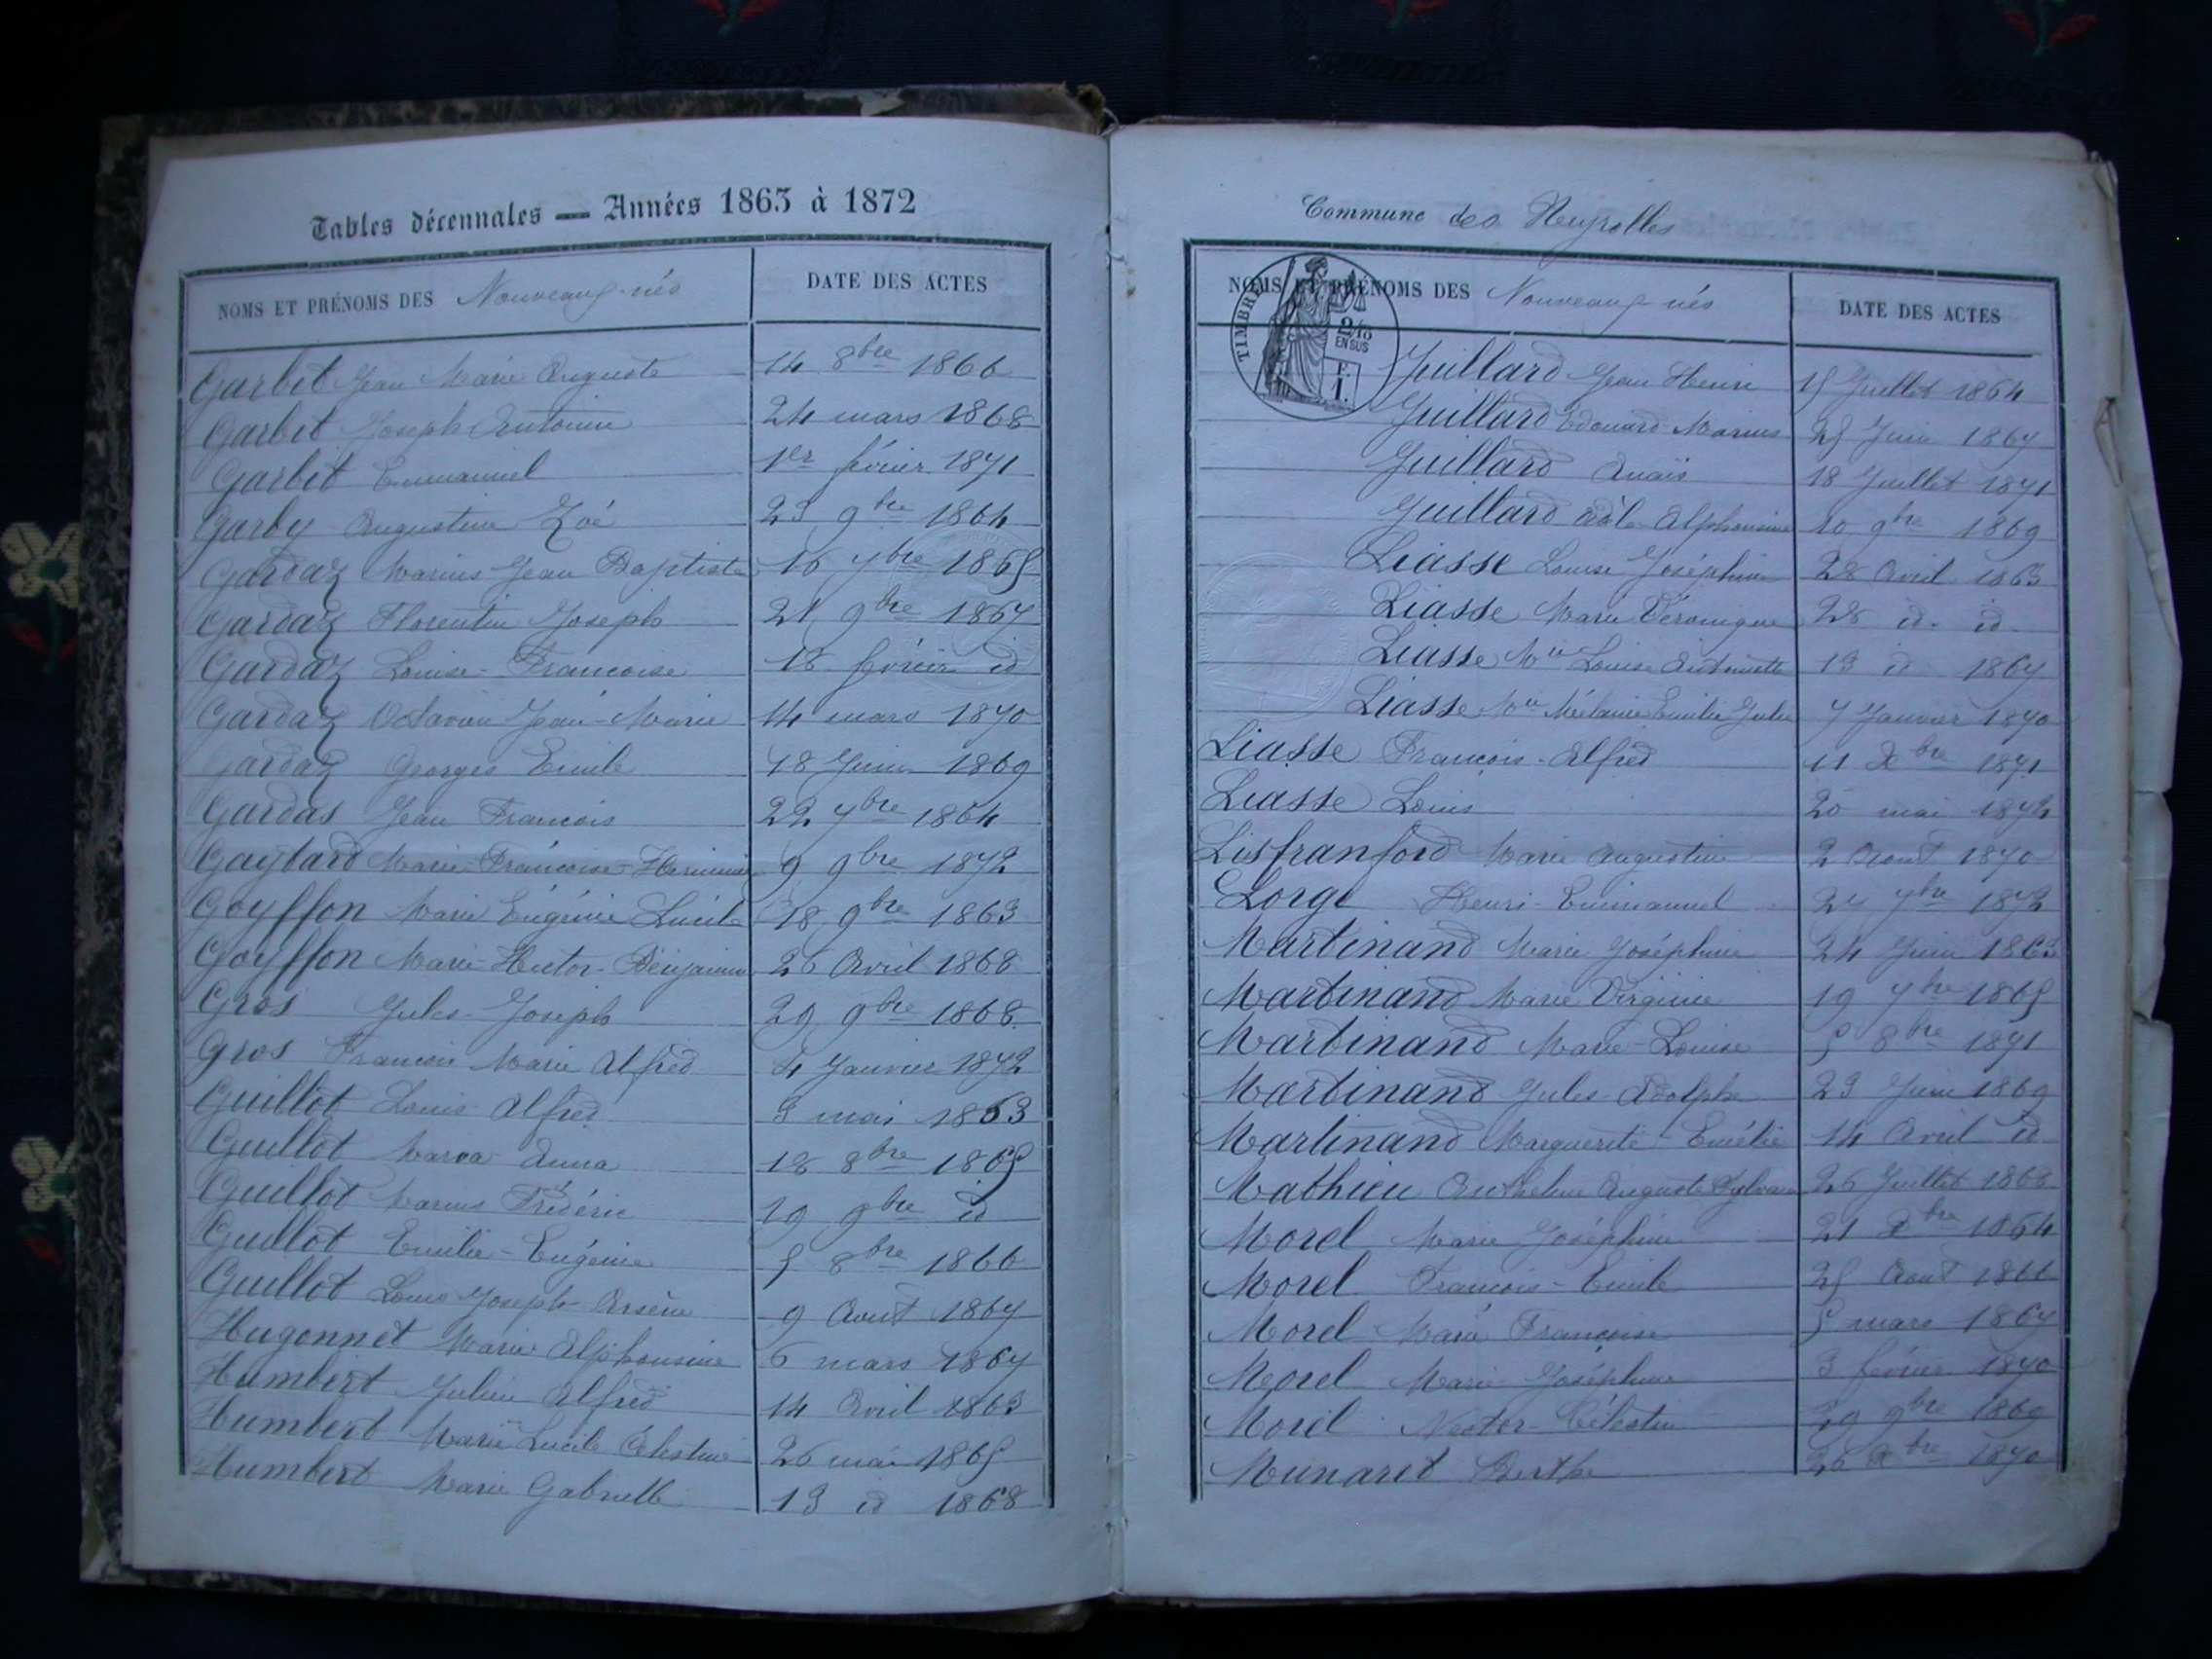 Tables décennales — Années 1863 à 1872
NOMS ET PRÉNOMS DES Nouveaux-nés DATE DES ACTES
Garbet Jean Marie Auguste 14 8bre 1866
Garbet Joseph Antoine 24 mars 1868
Garbet Emmanuel 1er février 1871
Garby Augustine Zoé 23 9bre 1864
Gardaz Marius Jean Baptiste 16 7bre 1865
Gardaz Florentin Joseph 21 9bre 1867
Gardaz Louise-Francoise 18 février id
Gardaz Octavie Jean-Marie 14 mars 1870
Gardaz Georges Emile 18 Juin 1869
Gardas Jean Francois 22 7bre 1864
Gaytard Marie-Francoise-Herminie 9 9bre 1872
Goyffon Marie Eugénie Lucile 18 9bre 1863
Goyffon Marie-Hector-Benjamin 26 Avril 1868
Gros Jules-Joseph 29 9bre 1868
Gros Francois Marie Alfred 4 Janvier 1872
Guillot Louis Alfred 3 mai 1863
Guillot Maria Anna 18 8bre 1865
Guillot Marius Frédéric 19 9bre id
Guillot Emilie-Eugénie 5 8bre 1866
Guillot Louis Joseph-Arsène 9 Aout 1867
Hugonnet Marie Alphonsine 6 mars 1867
Humbert Julien Alfred 14 Avril 1863
Humbert Marie Lucile Célestine 26 mai 1865
Humbert Marie Gabrielle 13 id 1868
Commune des Neyrolles
NOMS ET PRÉNOMS DES Nouveaux-nés DATE DES ACTES
TIMBRE
2/10
EN SUS
F.
1.
Juillard Jean Henri 15 Juillet 1864
Juillard Edouard Marius 25 Juin 1867
Juillard Anaïs 18 Juillet 1871
Juillard Adèle Alphonsine 10 9bre 1869
Liasse Louise Joséphine 28 Avril 1863
Liasse Marie Véronique 28 id. id
Liasse Mie Louise Antoinette 13 id 1867
Liasse Mie Mélanie Emilie Julie 7 Janvier 1870
Liasse Francois-Alfred 11 Xbre 1871
Liasse Louis 20 mai 1872
Lisfranford Marie Augustine 2 Aout 1870
Lorge Henri-Emmanuel 27 7bre 1872
Martinand Marie Joséphine 24 Juin 1863
Martinand Marie Virginie 19 7bre 1865
Martinand Marie-Louise 5 8bre 1871
Martinand Jules-Adolphe 23 Juin 1869
Martinand Marguerite-Emélie 14 Avril id
Mathieu Anthelme Auguste Sylvain 26 Juillet 1868
Morel Marie Joséphine 21 Xbre 1864
Morel Francois-Emile 25 Aout 1866
Morel Marie Francoise 5 mars 1867
Morel Marie-Joséphine 3 février 1870
Morel Nestor-Célestin 29 9bre 1869
Munaret Berthe 26 Xbre 1870